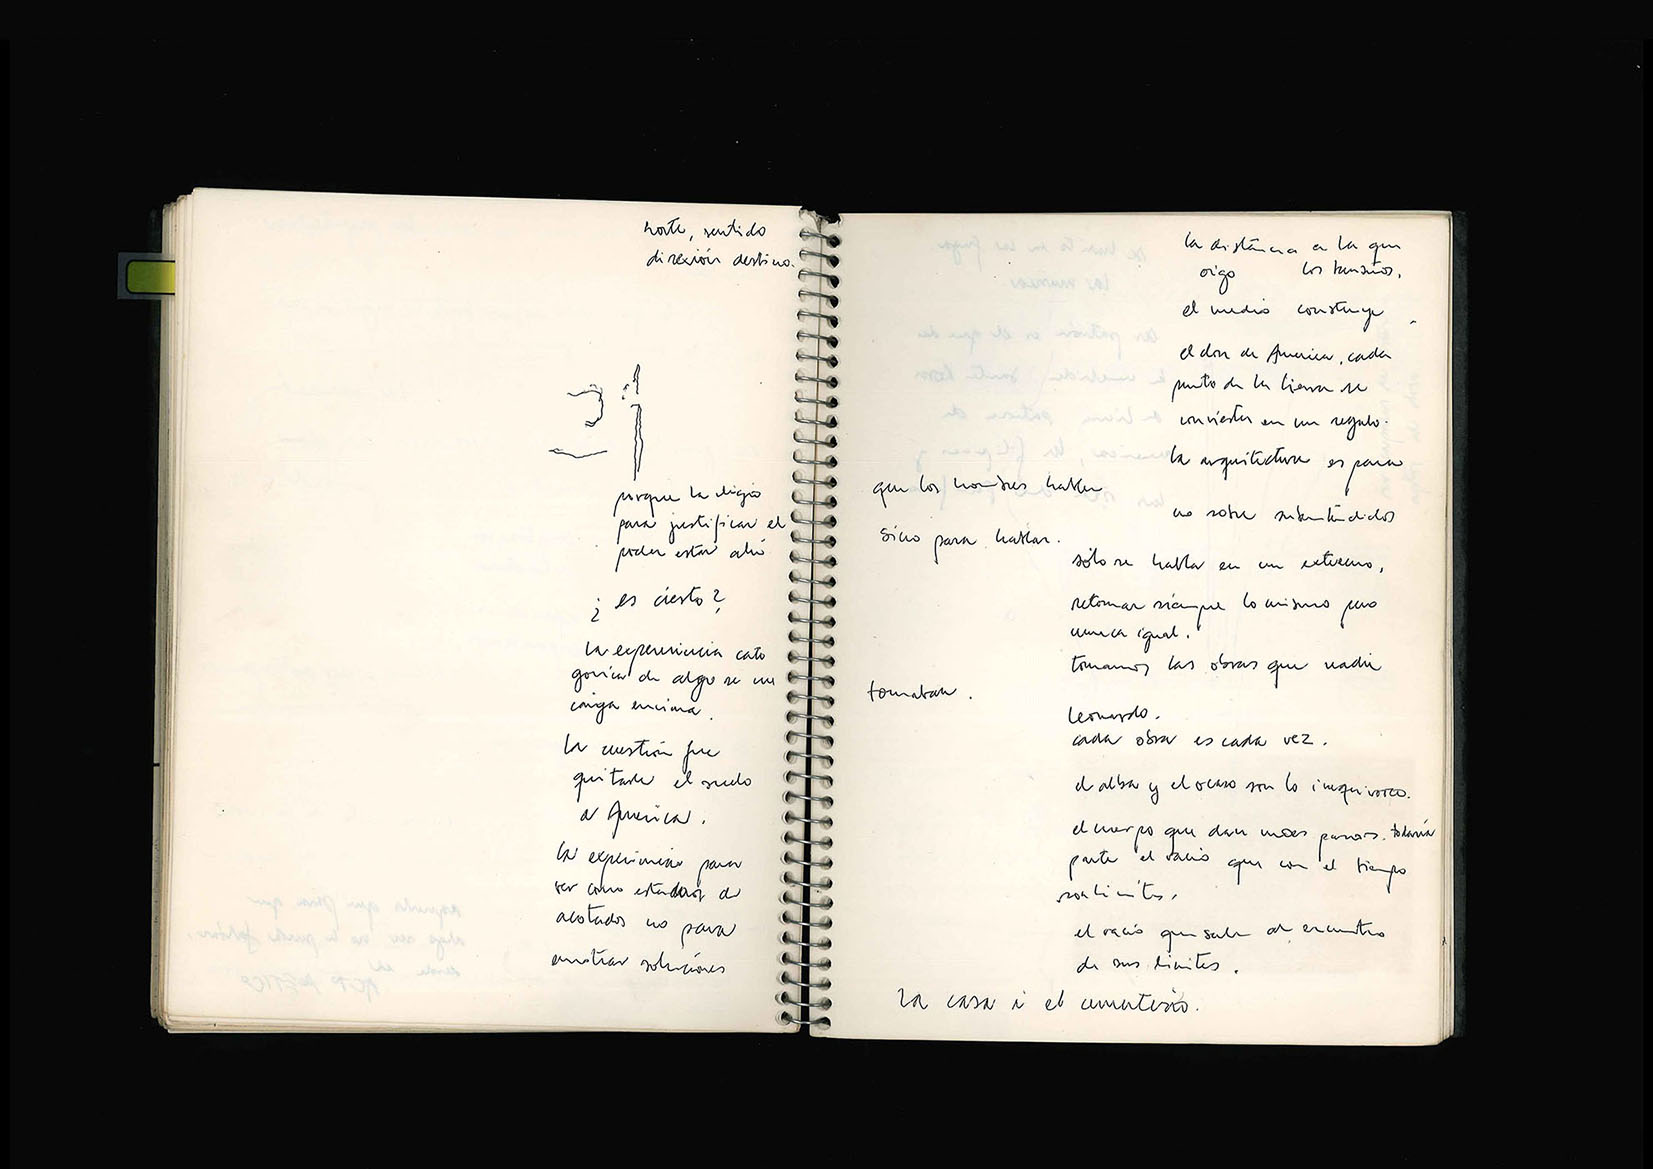 norte, sentido
dirección destino.
porque la eligió
para justificar el
poder estar ahí
¿ es cierto?
la experiencia cate
górica de algo se me
venga encima.
la cuestión fue
quitarle el suelo
a América.
la experiencia para
ver como
acotados no para
mostrar soluciones
la distancia a la que
oigo los tamaños.
el medio construye
el don de America, cada
punto de la tierra se
convierte en un regalo.
la arquitectura es para
que los hombres hablen
no sobre subentendidos
sino para hablar.
sólo se habla en un extremo,
retomar siempre lo mismo pero
nunca igual.
tomamos las obras que nadie
tomaban.
Leonardo.
cada obra es cada vez.
el alba y el ocaso son lo inequivoco.
el cuerpo que dan unas todavía
parte el vacío que con el tiempo
son limites.
el vacío que sale al encuentro
de sus limites.
la casa i el cementerio.